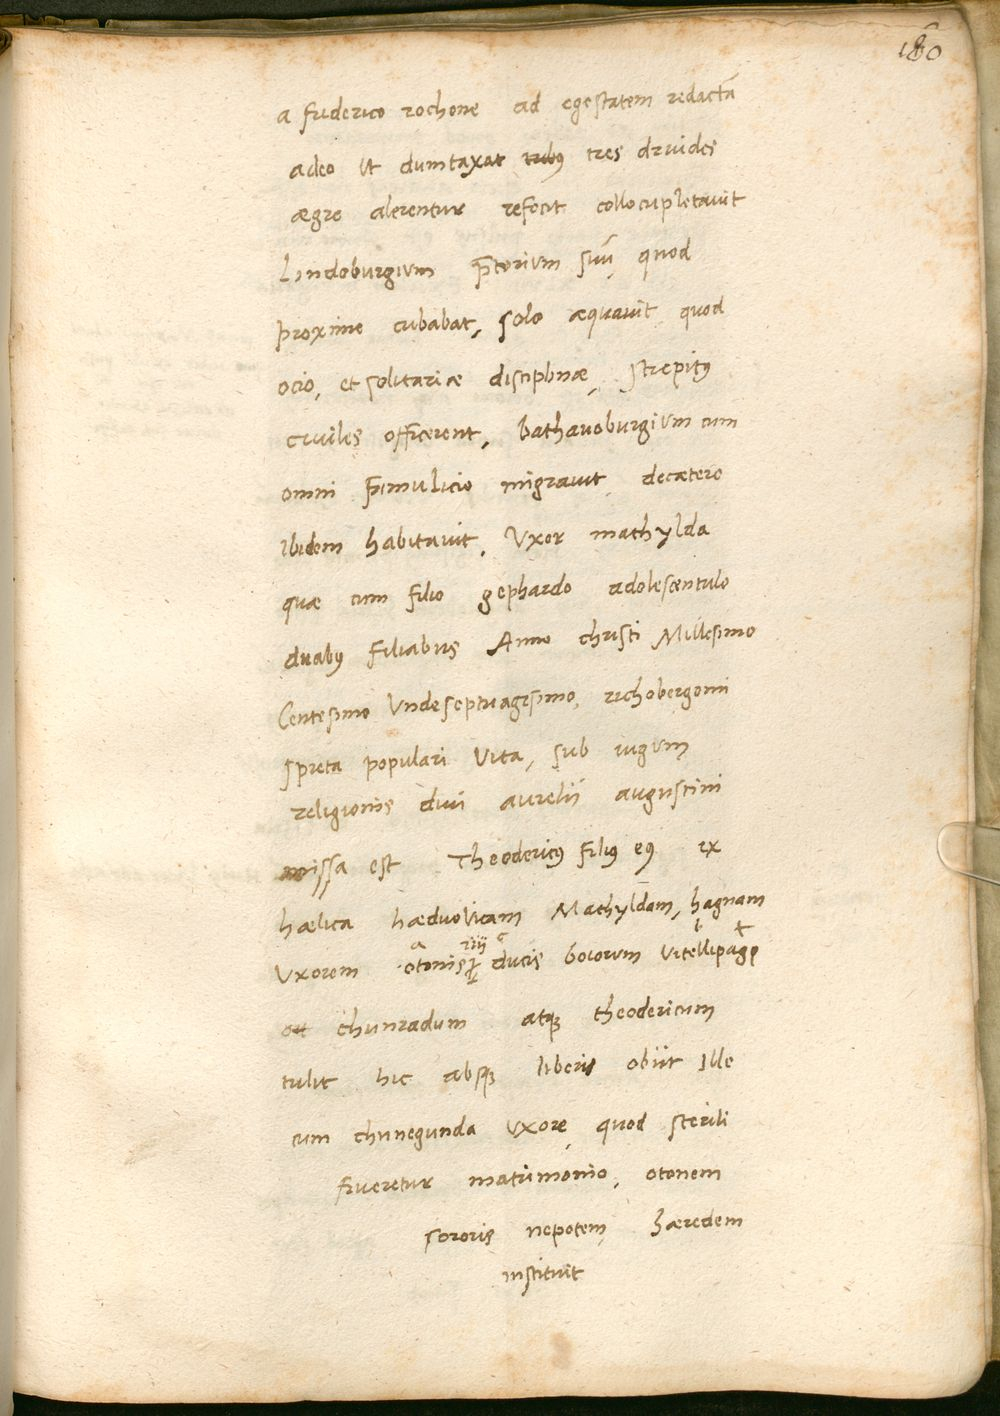 180
a friderico rochone ad egestatem redactā
adeo ut dumtaxat tribꝰ tres druides
ægre alerentur refecit collocupletavit
Lindoburgium p̄torium suū quod
proxime cubabat, solo æquavit quod
ocio, et solitariæ disciplinæ, strepitꝰ
civiles officerent, bathavoburgium cum
omni famulicio migravit decætero
ibidem habitavit, Uxor mathylda
quæ cum filio gephardo adolescentulo
duabꝰ filiabus Anno christi Millesimo
Centesimo Undeseptuagesimo, richobergomi
spreta populari vita, sub iugum
religionis divi aurelii augustini
missa est Theodericꝰ filiꝰ eꝰ ex
hælica hæduolicam Mathyldam, hagnam
uxorem otonis ducis boiorum vitellipagę
chunradum atqꝫ theodericum
tulit hic absqꝫ liberis obiit Ille
cum chunegunda uxore quod sterili
frueretur matrimonio, otonem
sororis nepotem hæredem
instituit